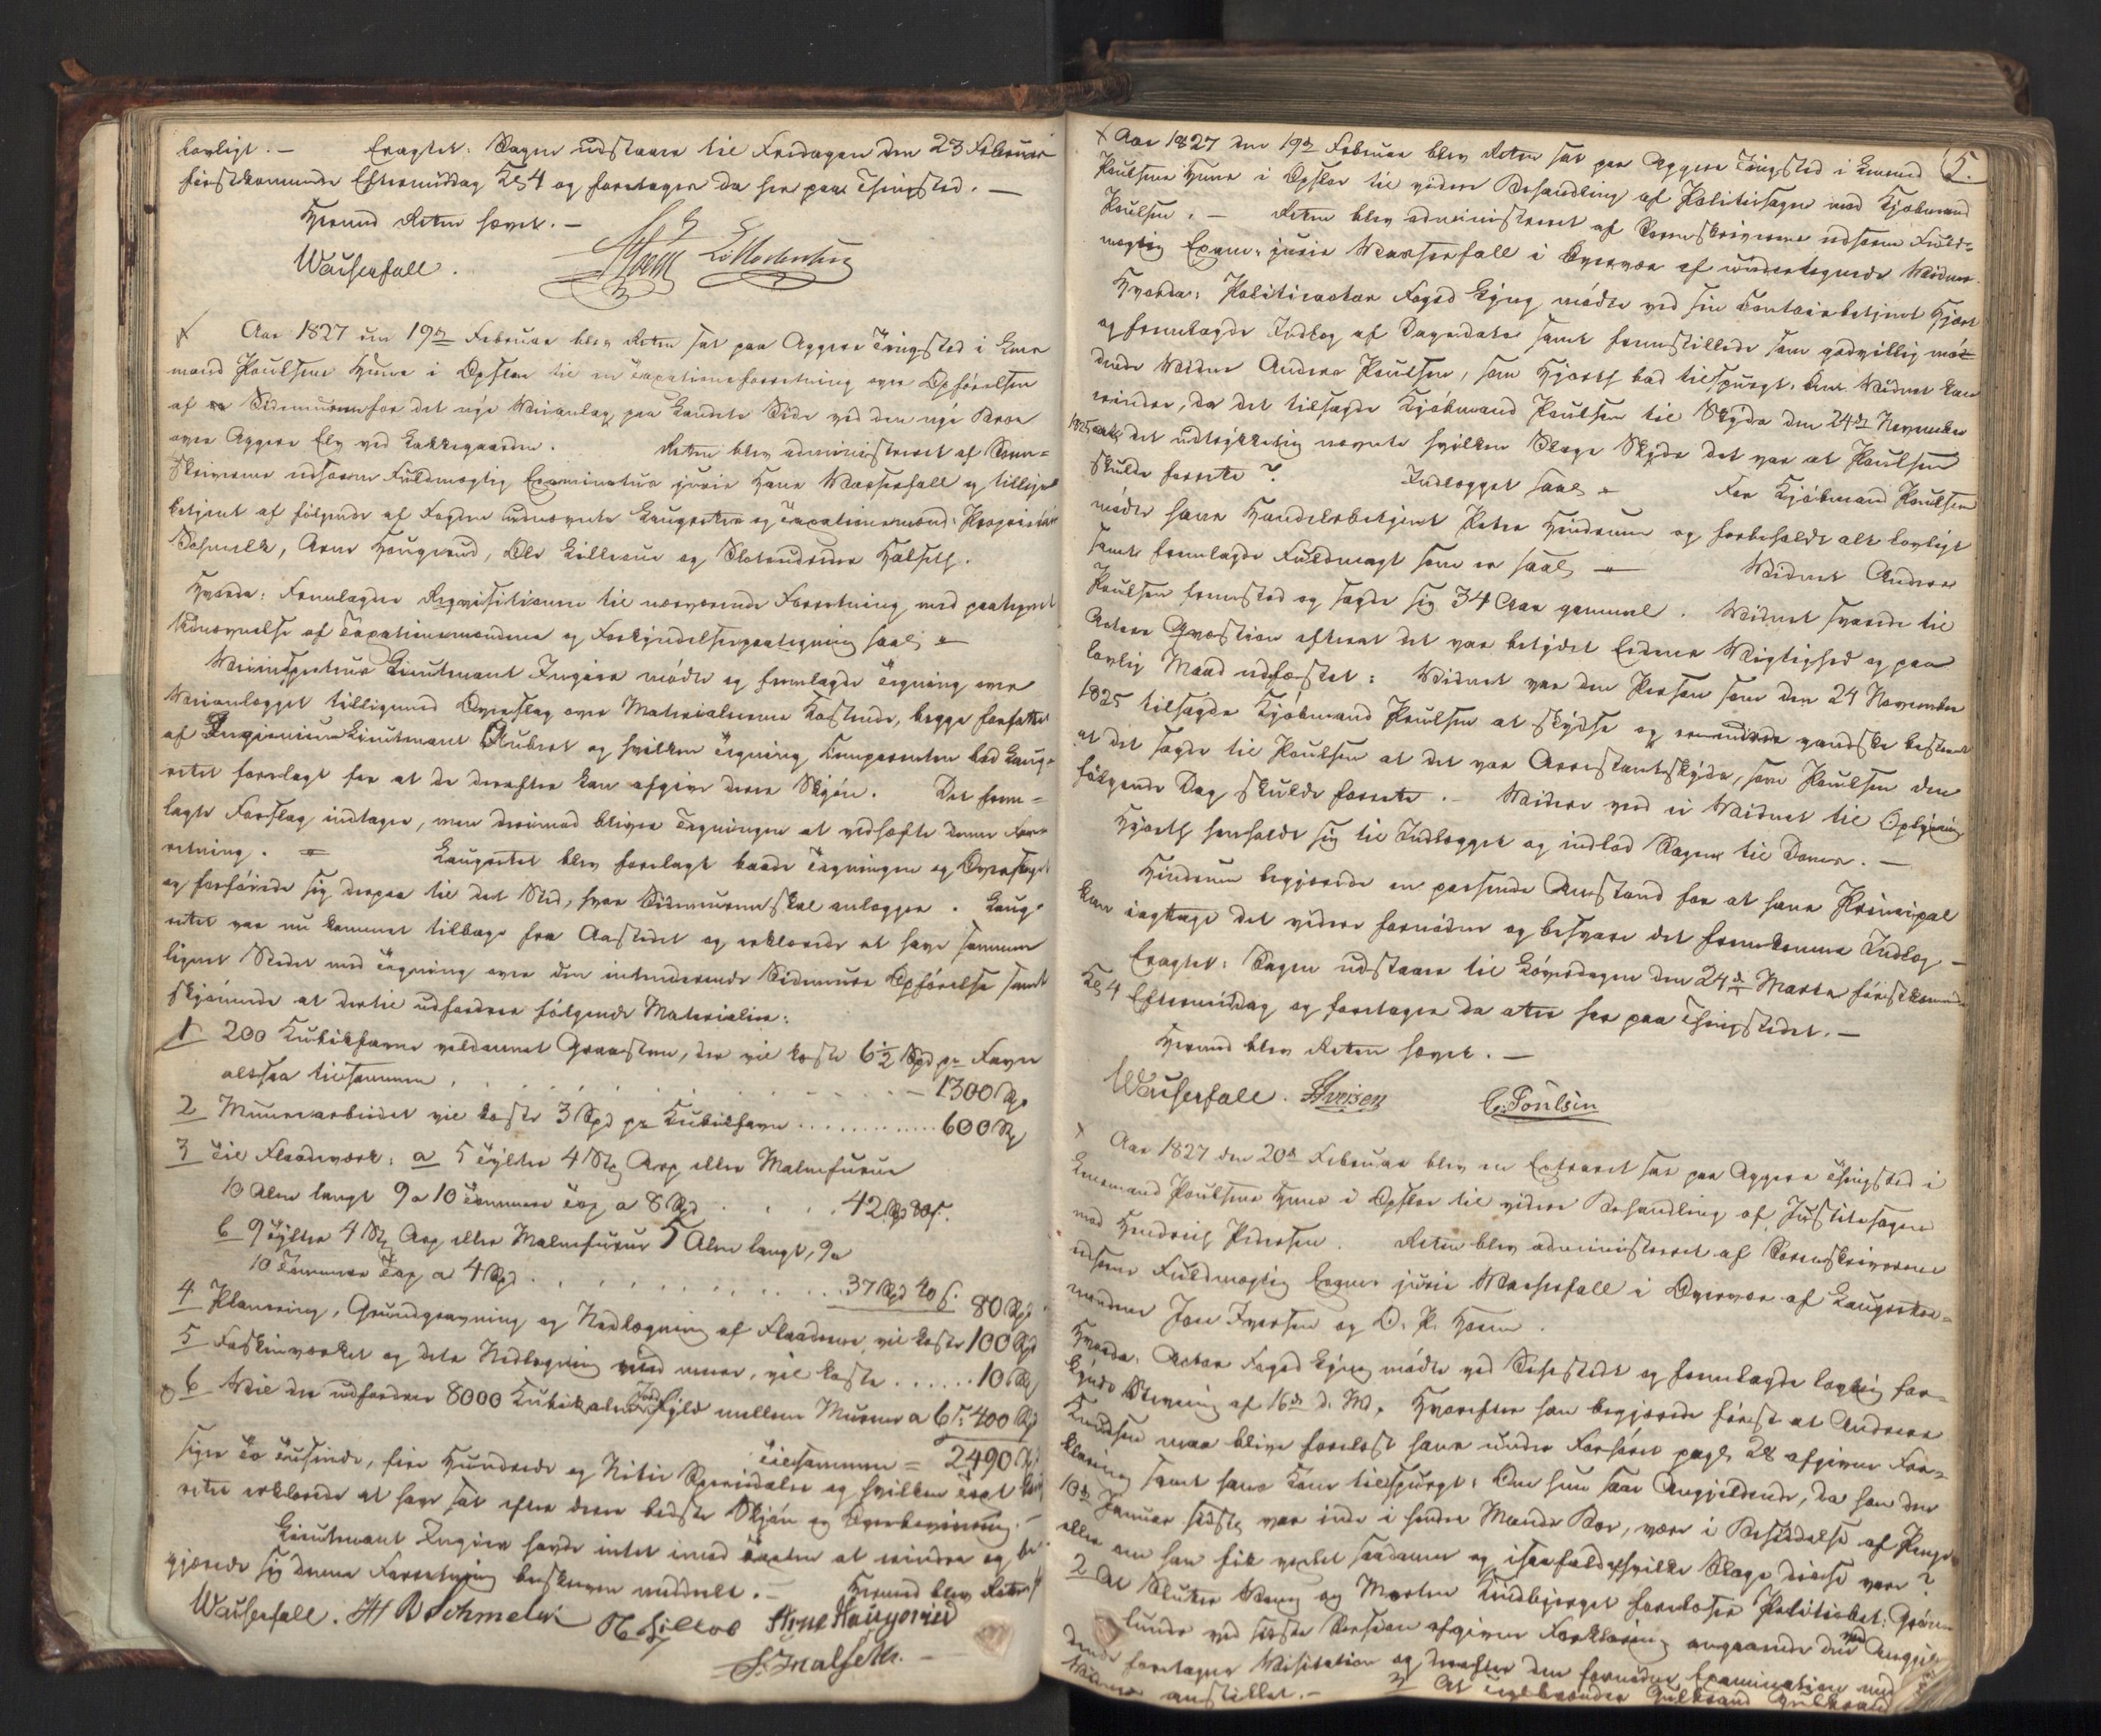 lovligt. — Eragtet: Sagen udstaaer til Fredagen den 23 Februar
førstkommende Eftermiddag Kl 4 og foretages da her paa Thingsted. —
Hermed Retten hævet. —
Wasserfall.
Aar 1827 den 19de Februar blev Retten sat paa Aggers Tingsted i Lens
mand Poulsens Huus i Opsloe til en Taxationsforretning over Opførelsen
af Sidemurene for det nye Veianlæg paa Landets Side ved den nye Broe
over Aggers Elv ved Lakkegaarden. Retten blev administreret af Soren=
skriverens udsatte Fuldmægtig Examinatus juris Hans Wasserfall og tillige
betjent af følgende af Fogden udnævnte Laugrettes og Taxationsmænd: Proprietær
Schmelk, Arne Hougerud, Ole Lilloe og Halseth.
Hvorda: Fremlagdes Reqvisitionen til nærværende Forretning med paategnet
Udnævnelse af Taxationsmændene og Forkyndelsespaategning saal.
Veiinspecteur Lieutenant Ingier mødte og fremlagde Tegning over
Veianlægget tilligemed Overslag over Materialiernes Kostende, begge forfattet
af Ingenieur Lieutenant Aubert og hvilken Tegning Comparenten bad Laug-
rettet forelagt for at de derefter kan afgive deres Skjøn. Det frem=
lagte Forslag indtages, men derimod bliver Tegningen at vedhæfte denne For=
retning. Laugrettet blev forelagt baade Tegningen og Overslaget
og forføiede sig derpaa til det Sted, hvor Sidemurene skal anlægges. Laug-
rettet var nu kommet tilbage fra Aastedet og erklærede at have sammen
lignet Stedet med Tegning over den intenderende Sidemurs Opførelse samt
skjønnede at dertil udfordres følgende Materialier:
1 200 Kubikfavne veldannet Graasteen, der vil koste 6½ Spd pr Favn
altsaa tilsammen . . . . . . — 1300 Sp
2 Muurarbeidet vil koste 3 Spd pr Kubikfavn . . . . . . 600 Sp
3 Til Flaadeværk: a 5 Tylter 4 Stk Asp eller Malmfuruer
10 Alen langt 9 a 10 Tommer Top a 8 Spd . . . . 42 Spd 80 s.
b 9 Tylter 4 Stk Asp eller Malmfuruer 5 Alen langt, 9 a
10 Tommer Top a 4 Spd . . . . . . 37 Spd 40 s. 80 Spd
4 Planering, Grundgravning og Nedlægning af Flaaderne, vil koste 100 Spd
5 Faskinværket og dets Nedlægning med mere, vil koste . . . . . . 10 Spd
6 Vil der udfordres 8000 Kubikalen Jordfyld mellem Murene a 6 s: 400 Spd
Tilsammen = 2490 Sp
siger To Tusinde, fire Hundrede og Nitie Speciedaler og hvilken Taxt Laug
rettet erklærede at have sat efter deres bedste Skjøn og Overbeviisning. —
Lieutenant Ingier havde intet imod Taxten at erindre og be
gjærede sig denne Forretning beskreven meddeelt. — Hermed blev Retten
Wasserfall. B Schmelck O Lilloe Arne Hougerud
Halseth. —
5.
Aar 1827 den 19de Februar blev Retten sat paa Aggers Tingsted i Lensmand
Poulsens Huus i Opsloe til videre Behandling af Politiesagen mod Kjøbmand
Poulsen. — Retten blev administreret af Sorenskriverens udsatte Fuld=
mægtig Exam: juris Wasserfall i Overvær af undertegnede Vidner.
Hvorda: Politieactor Foged Lyng mødte ved sin Contoirbetjent Hjort
og fremlagde Indlæg af Dagsdato samt fremstillede som godvillig mø=
dende Vidne Anders Poulsen, som Hjorth bad tilspurgt: Om Vidnet kan
erindre, da det tilsagde Kjøbmand Poulsen til Skyds den 24de November
1825 det udtrykkelig nævnte hvilken Slags Skyds det var at Poulsen
skulde forrette? Indlægget saal. For Kjøbmand Poulsen
mødte hans Handelsbetjent Peter Hindrum og forbeholdt alt lovligt
samt fremlagde Fuldmagt som er saal. Vidnet Anders
Poulsen fremstod og sagde sig 34 Aar gammel. Vidnet svarede til
Actors Qvæstion efterat det var betydet Edens Vigtighed og paa
lovlig Maade edfæstet: Vidnet var den Person som den 24 November
1825 tilsagde Kjøbmand Poulsen at skydse og erindrer gandske bestemt
at det sagde til Poulsen at det var Arrestantskyds, som Poulsen den
følgende Dag skulde forrette. — Videre veed ei Vidnet til Oplysning
Hjorth henholdt sig til Indlægget og indlod Sagen til Doms. —
Hindrum begjærede en passende Anstand for at hans Principal
kan iagttage det videre fornødne og besvare det fremkomne Indlæg —
Eragtet: Sagen udstaaer til Løverdagen den 24de Marts førstkommende
Kl 4 Eftermiddag og foretages da atter her paa Thingstedet. —
Hermed blev Retten hævet. —
Wasserfall. Iversen C. Poulsen
Aar 1827 den 20de Februar blev en Extraret sat paa Aggers Thingsted i
Lensmand Poulsens Huus i Opsloe til videre Behandling af Justitssagen
mod Hendrich Pedersen. Retten blev administreret af Sorenskriverens
udsatte Fuldmægtig Exam: juris Wasserfall i Overvær af Laugrettes=
mændene Jon Iversen og O. P. Hoem.
Hvorda: Actor Foged Lyng mødte ved Sehestedt og fremlagde lovlig for=
kyndt Stevning af 16de d. M. Hvorefter han begjærede først at Anders
Knudsen maa blive forelæst hans under Forhøret pag 28 afgivne For=
klaring samt hans Kone tilspurgt: Om hun saae Angjeldende, da han den
10de Januar sidste var inde i hendes Mands Boe, være i Besiddelse af Penge
eller om han fik vexlet saadanne og isaafald hvilke Slags disse vare?
2 At Slutter Wang og Morten Lindbjerget forelæses Politiebet: Grøn
lunds ved sidste Session afgivne Forklaring angaaende den ved Angjel
dende foretagne Visitation og derefter den fornødne Examination med
Vidnerne anstillet. — 3 At